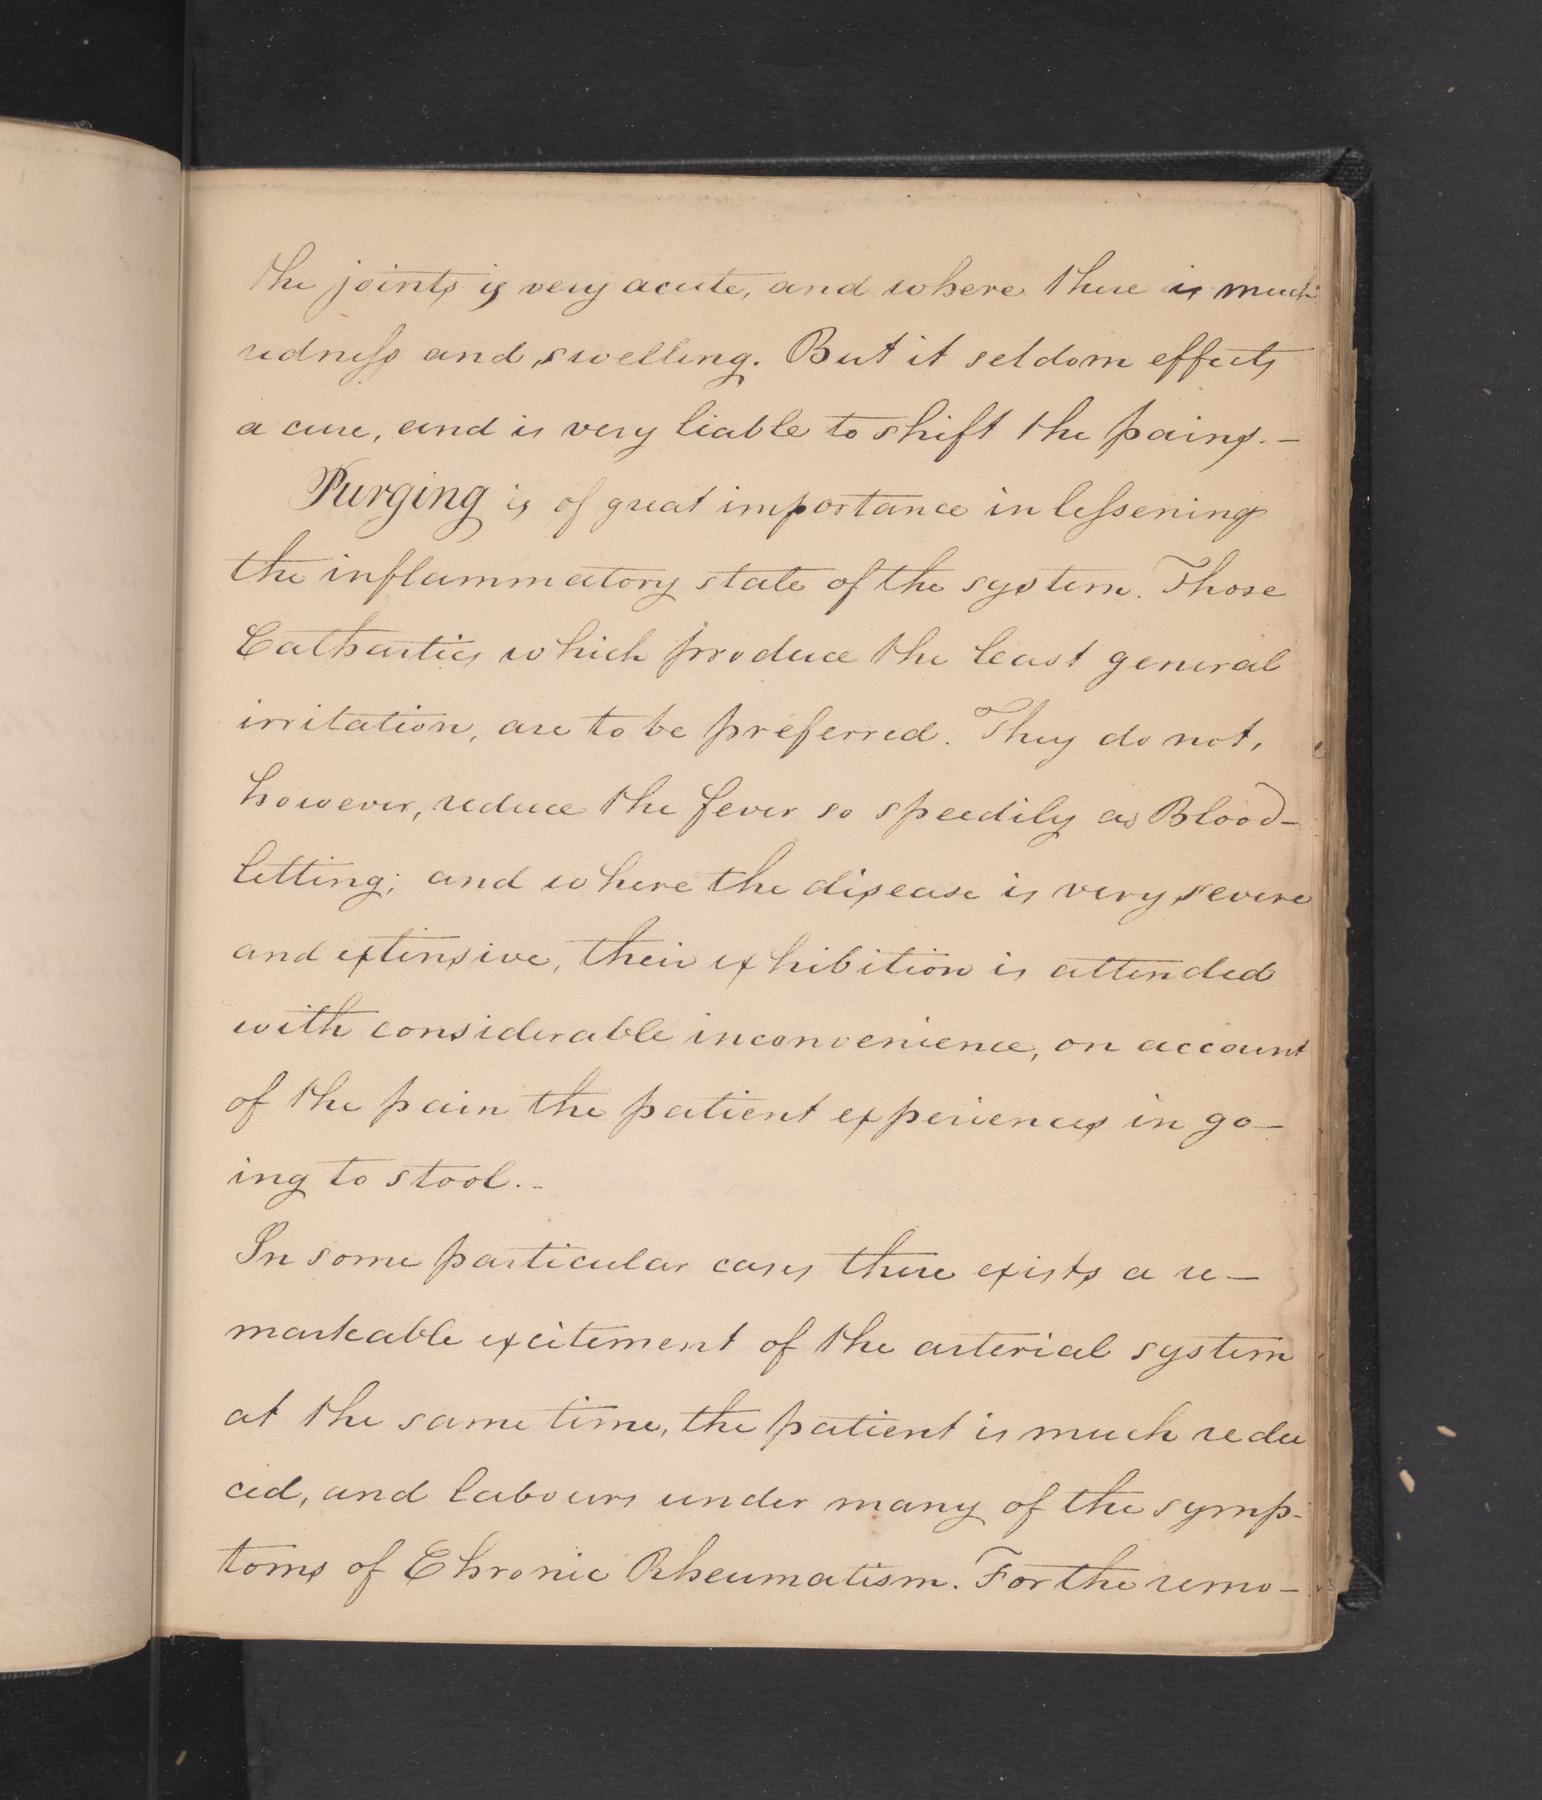 the joints is very acute, and where there is much
redness and swelling. But it seldom effects
a cure, and is very liable to shift the pains. —
Purging is of great importance in lessening
the inflammatory state of the system. Those
Cathartics which produce the least general
irritation, are to be preferred. They do not,
however, reduce the fever so speedily as Blood-
letting; and where the disease is very severe
and extensive, their exhibition is attended
with considerable inconvenience, on account
of the pain the patient experiences in go-
ing to stool. -
In some particular cases there exists a re-
markeable excitement of the arterial system
at the same time, the patient is much redu
ced, and labours under many of the symp-
toms of Chronic Rheumatism. For the remo-